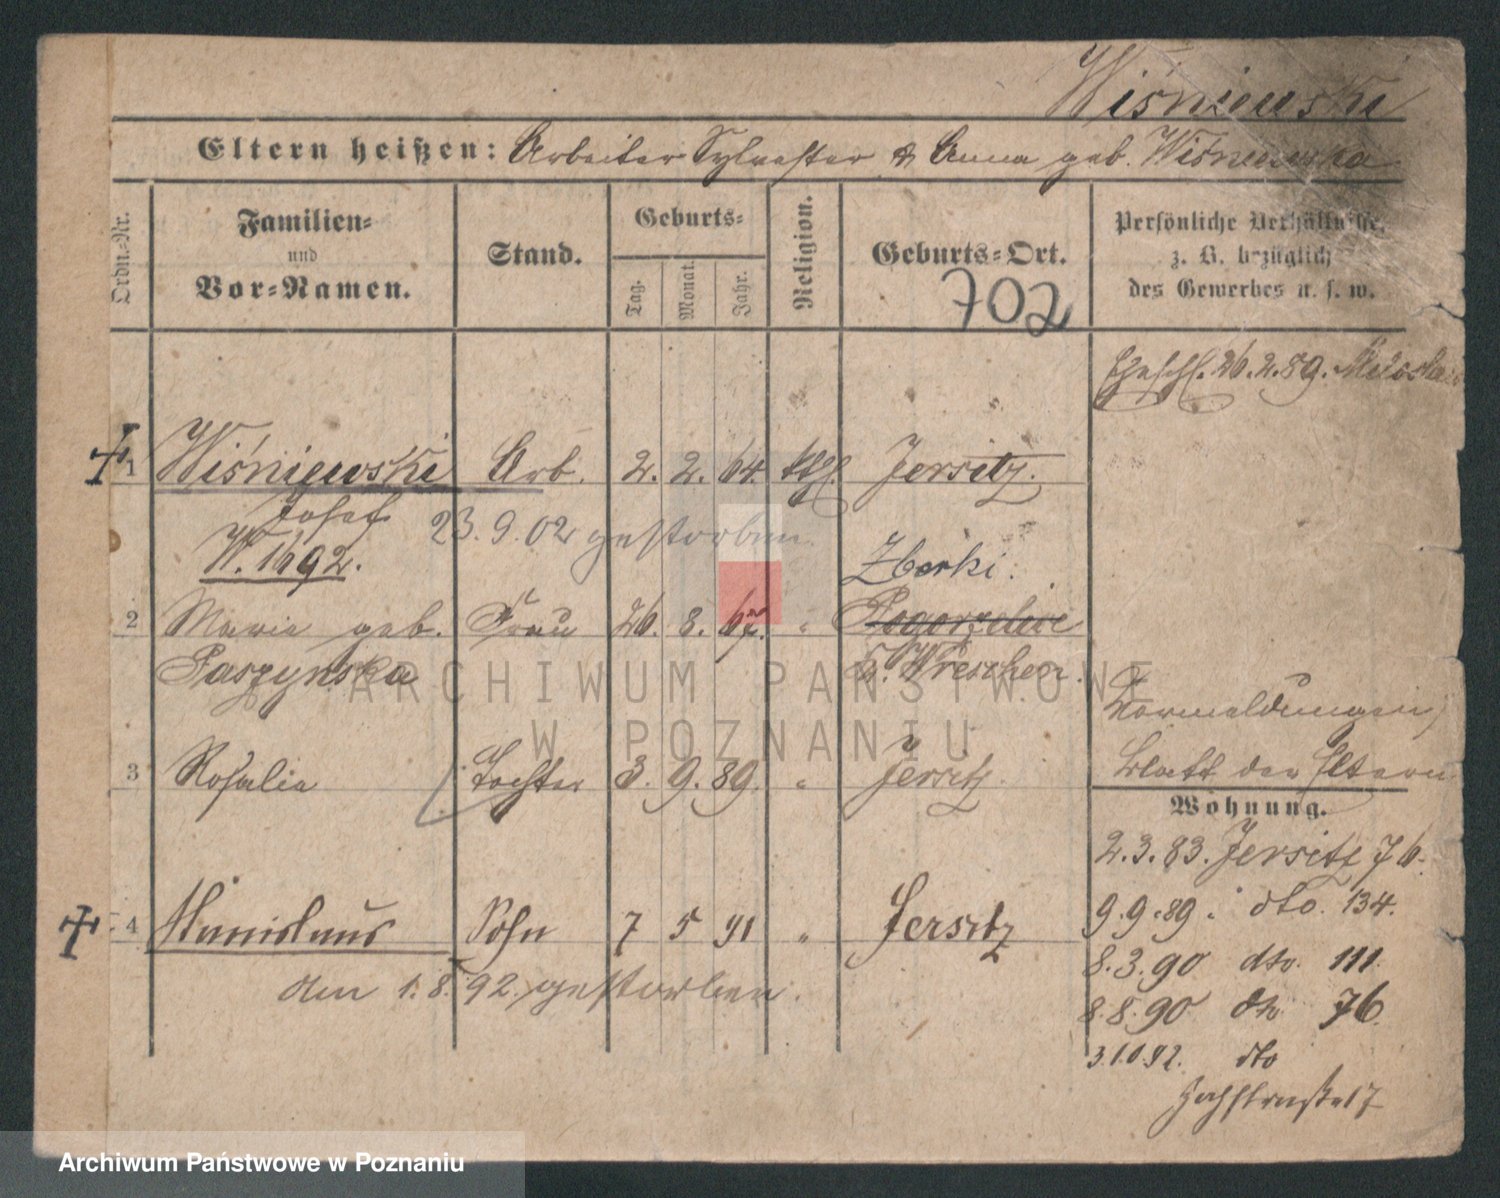 Wiśniewski
Eltern heißen: Arbeiter Sylvester & Anna geb. Wiśniewska
Ordn.-Nr.
Familien-
und
Vor-Namen.
Stand.
Geburts-
Tag.
Monat.
Jahr.
Religion.
Geburts-Ort.
702
Persönliche Verhältnisse,
z. B. bezüglich
des Gewerbes u. s. w.
Eheschl. 26.2.89.
1 Wiśniewski Arb. 2. 2. 64. kth. Jersitz.
Josef 23.9.02 gestorben.
W. 1692.
Zberki.
2 Marie geb. Frau 26. 8. 67. " Pogorzelice
Paszynska b. Wreschen.
Vormeldungen,
3 Rosalie Tochter 3. 9. 89. " Jersitz.
Blatt der Eltern
Wohnung.
2.3.83. Jersitz 76.
9.9.89. dto. 134.
4 Stanislaus Sohn 7 5 91 " Jersitz
8.3.90 dto. 111.
am 1.8.92. gestorben.
8.8.90 dto 76.
3.10.92. dto
17
ARCHIWUM PAŃSTWOWE
W POZNANIU
Archiwum Państwowe w Poznaniu